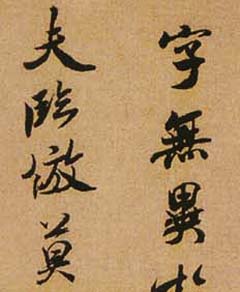 字無異
夫臨倣莫